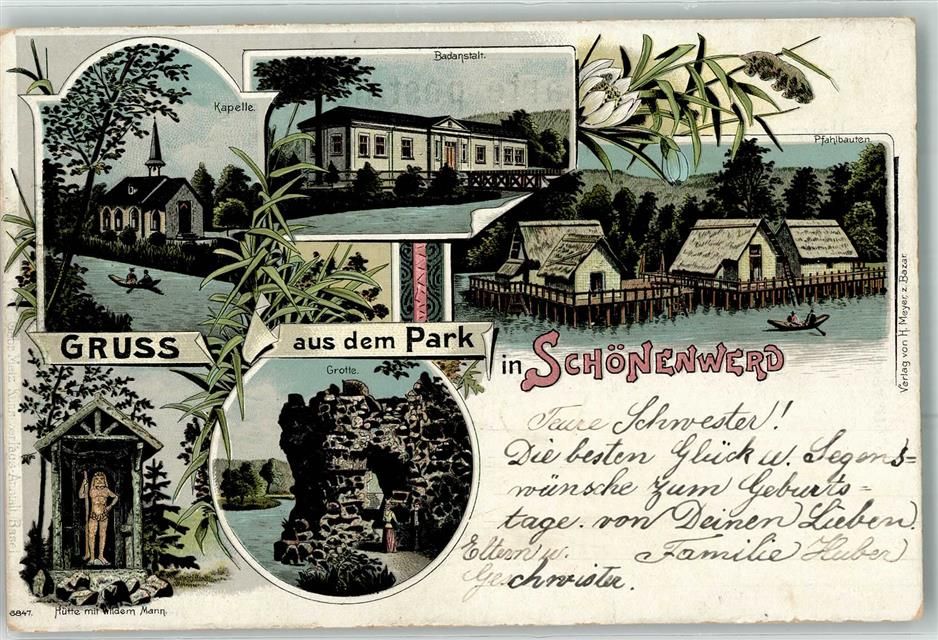 Kapelle.
Badanstalt.
Pfahlbauten.
GRUSS
aus dem Park
in SCHÖNENWERD
Grotte.
Verlag von H. Meyer, z. Bazar.
Teure Schwester!
Die besten Glück u. Segens-
wünsche zum Geburts-
tage. von Deinen Lieben
Eltern u. Familie Huber
Geschwister.
6847. Hütte mit wildem Mann.